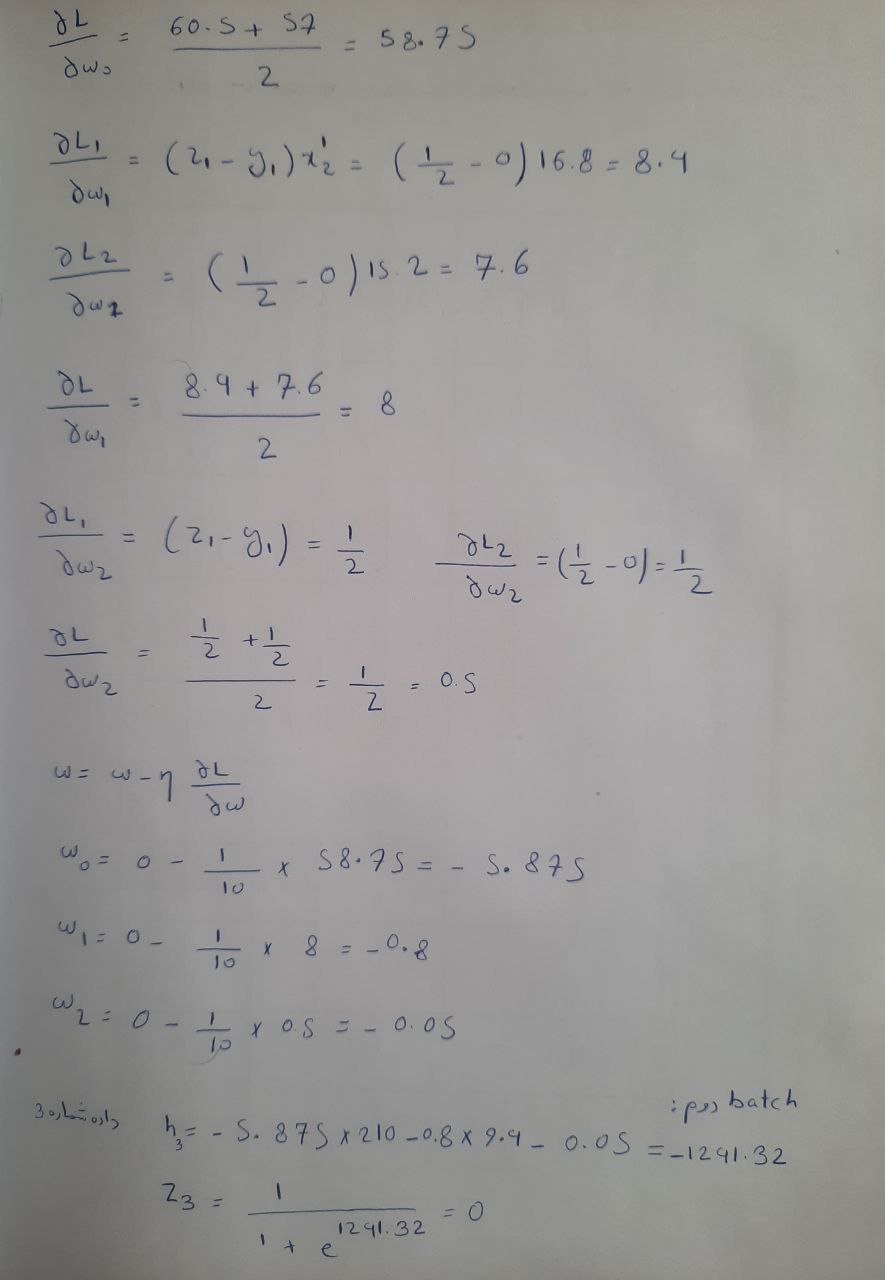 ∂L/∂w₀ = (60.5 + 57)/2 = 58.75
∂L₁/∂w₁ = (z₁ - y₁) x₂¹ = (1/2 - 0) 16.8 = 8.4
∂L₂/∂w₁ = (1/2 - 0) 15.2 = 7.6
∂L/∂w₁ = (8.4 + 7.6)/2 = 8
∂L₁/∂w₂ = (z₁ - y₁) = 1/2 ∂L₂/∂w₂ = (1/2 - 0) = 1/2
∂L/∂w₂ = (1/2 + 1/2)/2 = 1/2 = 0.5
w = w - η ∂L/∂w
w₀ = 0 - 1/10 × 58.75 = - 5.875
w₁ = 0 - 1/10 × 8 = -0.8
w₂ = 0 - 1/10 × 0.5 = - 0.05
batch دوم:
داده شماره 3 h₃ = - 5.875 × 210 - 0.8 × 9.4 - 0.05 = -1241.32
z₃ = 1/(1 + e^1241.32) = 0